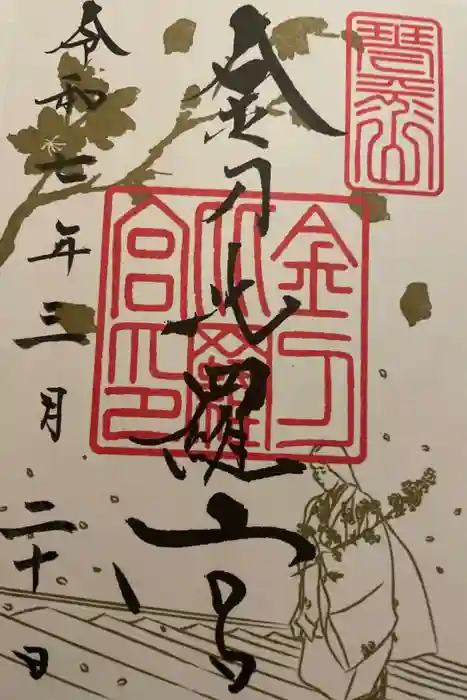 琴平山
金刀比羅宮
金刀比羅宮印
令和七年三月二十日